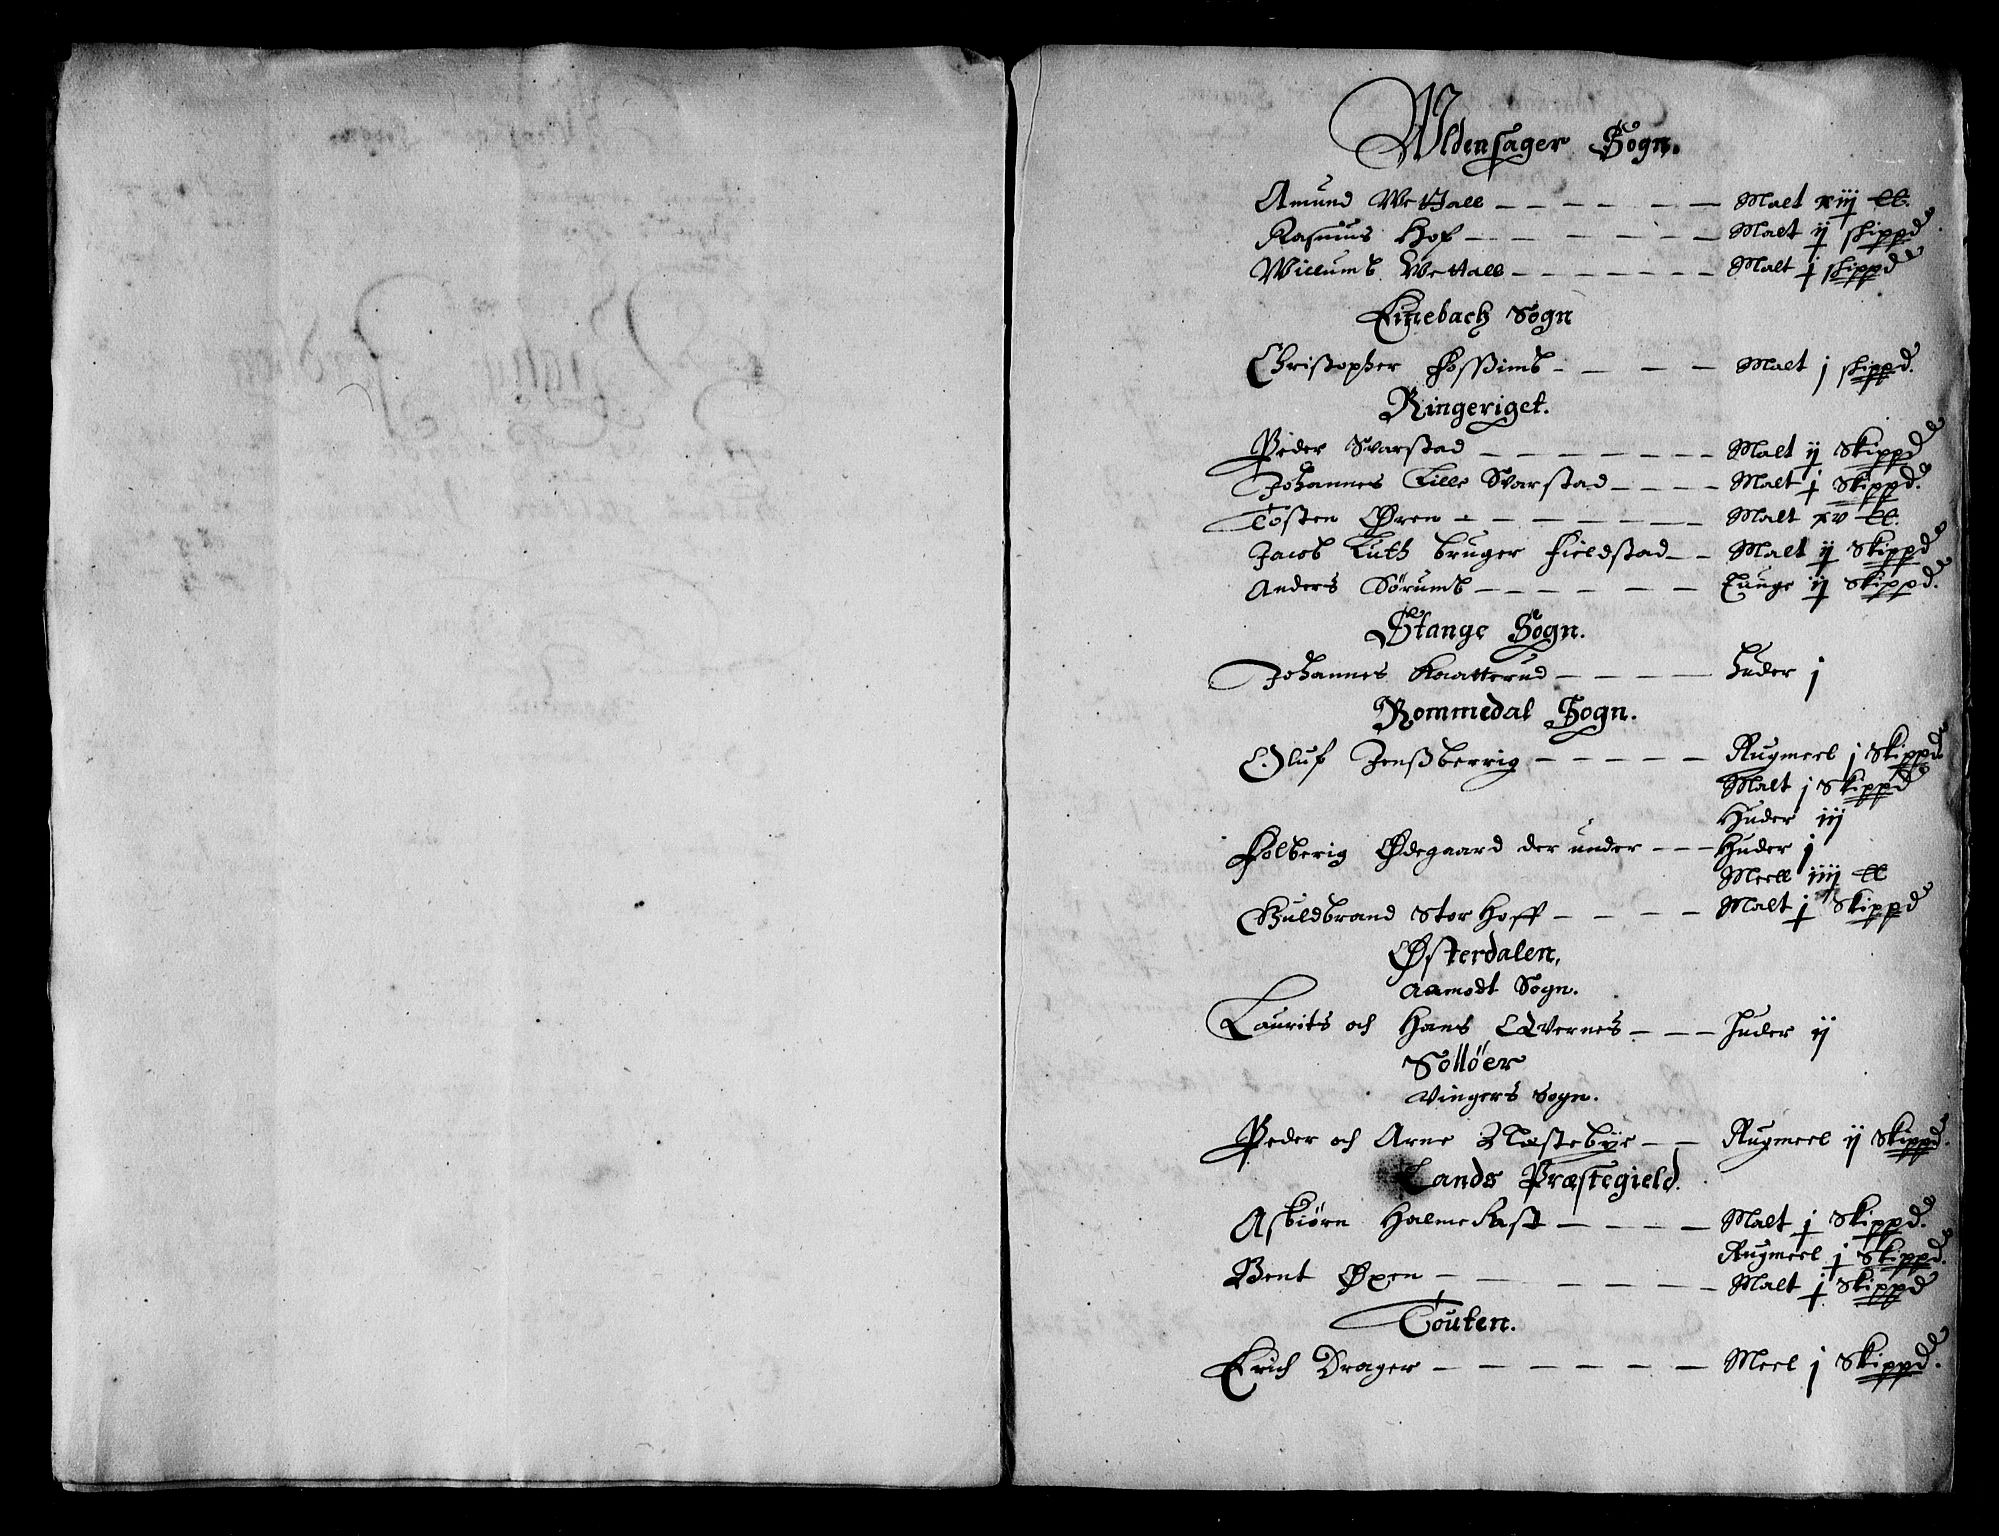 Uldensager Sogn.
Amund Wettall - - - - - - Malt xiij ℔.
Rasmus Hof - - - - - - Malt ij skippd.
Willumb Wettall - - - - - - Malt j skippd
Einebach Sogn
Christopher Fossimb - - - - Malt j skippd.
Ringeriget.
Peder Svarstad - - - - - - - Malt ij Skippd
Johannes Lille Svarstad - - - - Malt j Skippd.
Tosten Øren - - - - - - - Malt xv ℔.
Jacob Luth bruger Fieldstad - - Malt ij Skippd
Anders Sørumb - - - - - - Tunge ij Skippd.
Stange Sogn.
Johannes Kaatterud - - - - - Huder j
Rommedal Sogn.
Oluf Jenssberrig - - - - - Rugmeel j Skippd
Malt j Skippd
Huder iij
Folberig Ødegaard der under - - - Huder j
Meell iiij ℔
Guldbrand Stor Hoff - - - - Malt j Skippd
Østerdalen,
Aamodt Sogn.
Laurits och Hans Qvernes - - - Huder ij
Solløer
Vingers Sogn.
Peder och Arne Næstebye - - Rugmeel ij Skippd.
Lands Præstegield.
Asbiørn Halmekast - - - - Malt j Skippd.
Rugmeel j Skippd.
Bent Øxen - - - - - - Malt j Skippd
Touten.
Erich Drager - - - - - - Meel j Skippd.